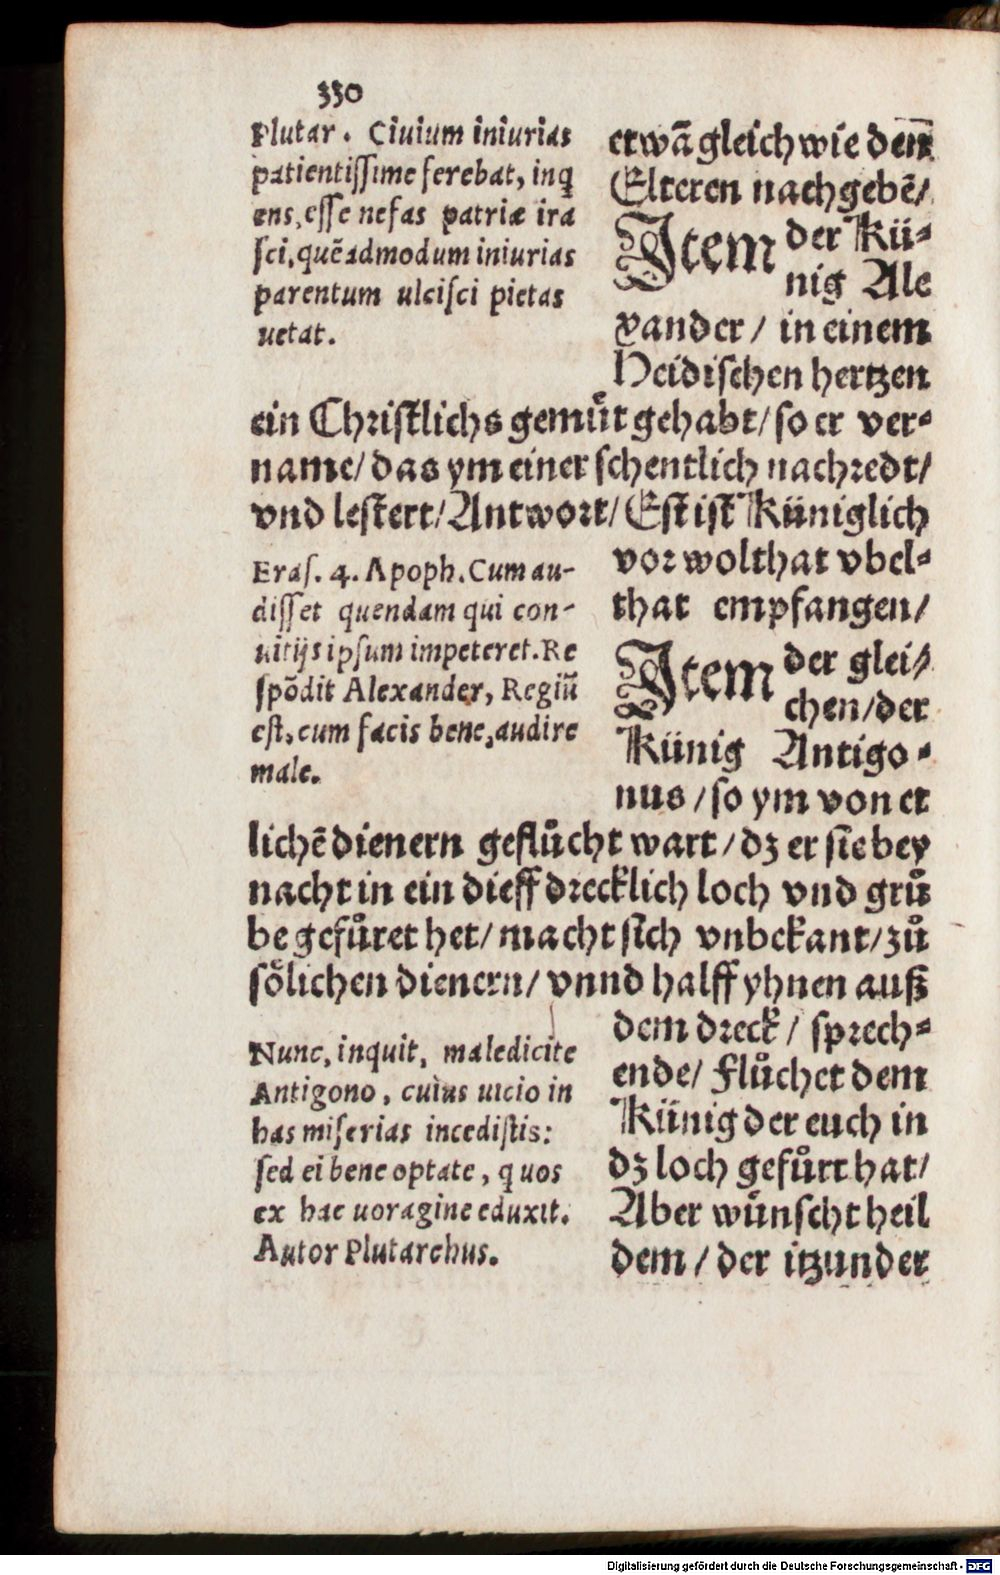 330
Plutar. Ciuium iniurias
patientissime ferebat, inq
ens, esse nefas patriæ ira
sci, quẽadmodum iniurias
parentum ulcisci pietas
uetat.
etwã gleich wie den̄
Elteren nachgebẽ/
Item der Kü-
nig Ale
xander / in einem
Heidischen hertzen
ein Christlichs gemuͤt gehabt/ so er ver-
name/ das ym einer schentlich nachredt/
vnd lestert/ Antwort/ Est ist Küniglich
vor wolthat vbel-
that empfangen/
Eras. 4. Apoph. Cum au-
disset quendam qui con-
uitijs ipsum impeteret. Re
spõdit Alexander, Regiũ
est, cum facis bene, audire
male.
Item der glei/
chen/ der
Künig Antigo-
nus / so ym von et
lichẽ dienern gefluͦcht wart/ dz er sie bey
nacht in ein dieff drecklich loch vnd gruͦ
be gefuͦret het/ macht sich vnbekant/ zuͦ
soͤlichen dienern/ vnnd halff yhnen auß
dem dreck / sprech-
ende/ Fluͦchet dem
Künig der euch in
dz loch gefuͦrt hat/
Aber wuͦnscht heil
dem / der itzunder
Nunc, inquit, maledicite
Antigono, cuius uicio in
has miserias incedistis:
sed ei bene optate, quos
ex hac uoragine eduxit.
Autor Plutarchus.
Digitalisierung gefördert durch die Deutsche Forschungsgemeinschaft - DFG